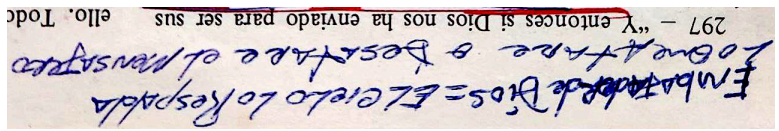 Embajador de Dios = EL Cielo Lo Respalda
Lo que atare o Desatare el mensajero
297 – “Y entonces si Dios nos ha enviado para ser sus ello. Todo